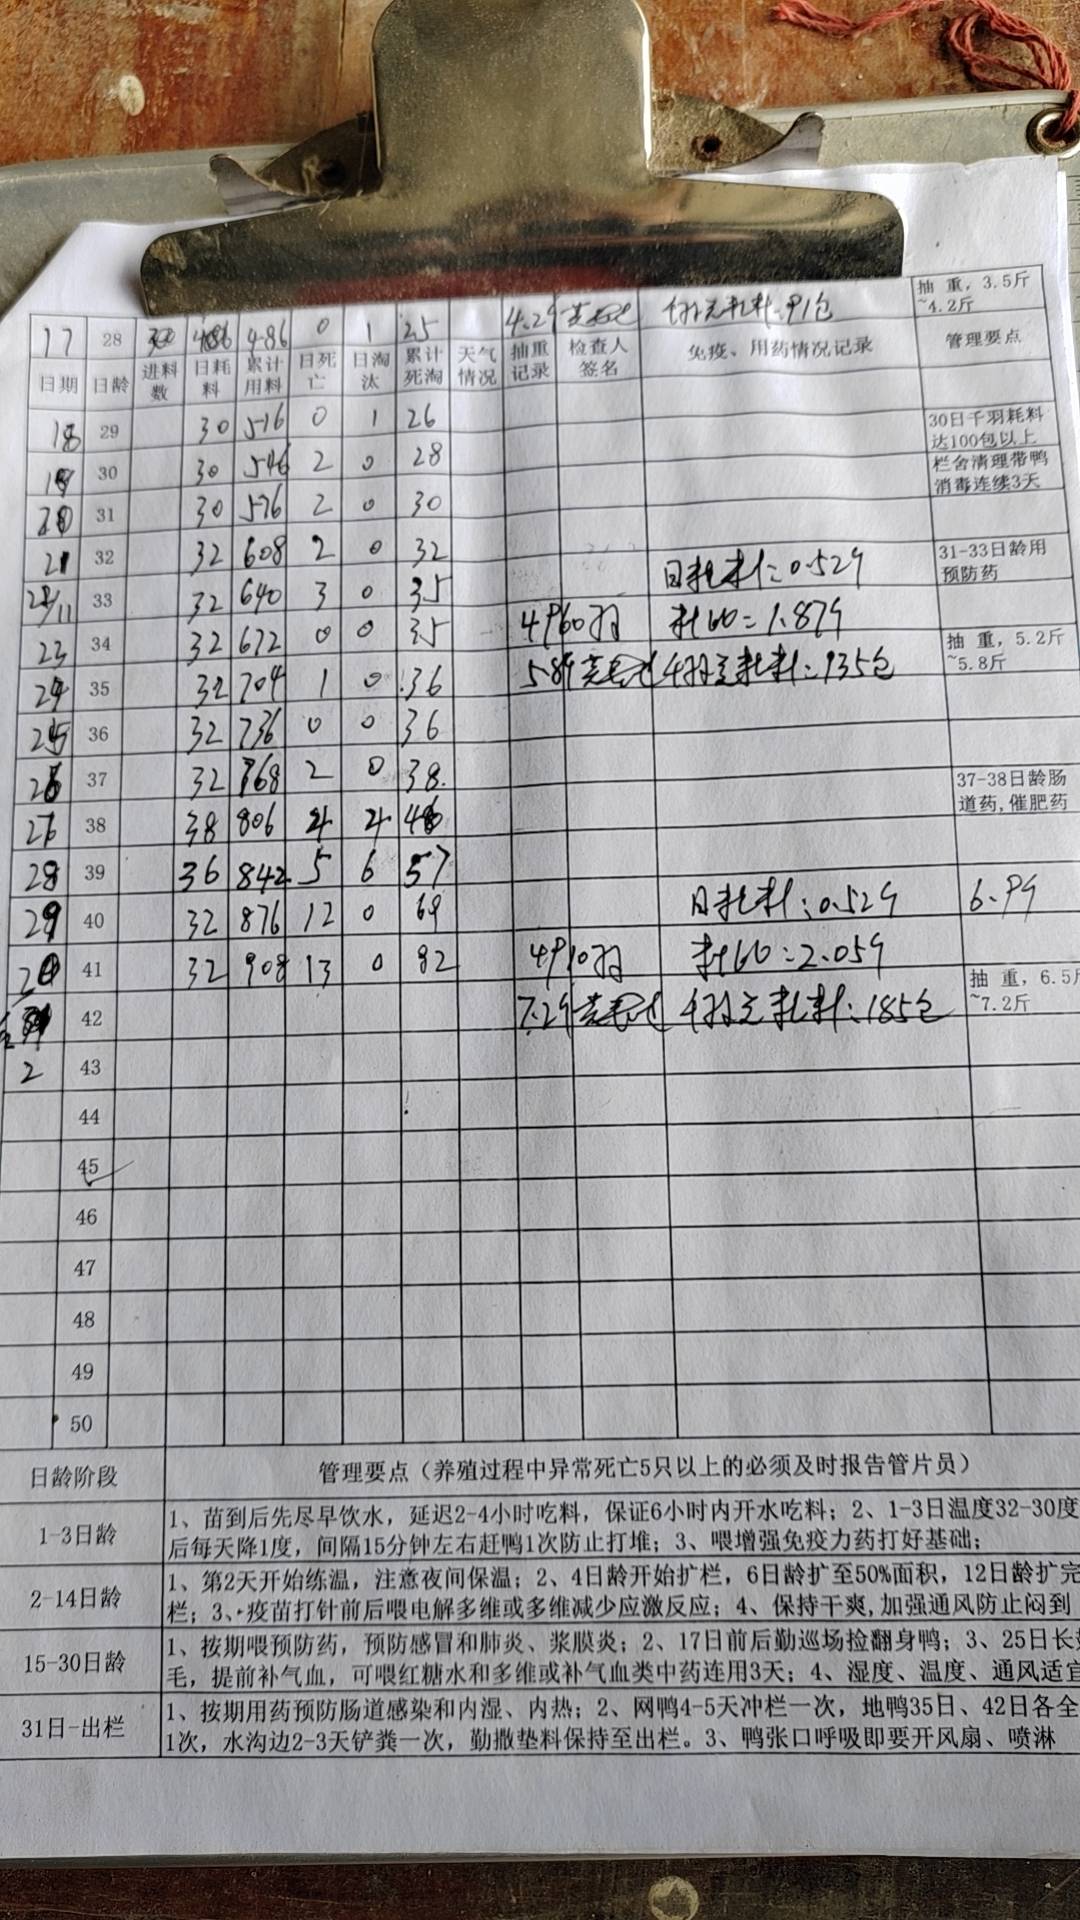 抽 重，3.5斤
~4.2斤
17 28 486 486 0 1 25 4.29 千羽完耗料:91包
日期 日龄 进料数 日耗料 累计用料 日死亡 日淘汰 累计死淘 天气情况 抽重记录 检查人签名 免疫、用药情况记录 管理要点
18 29 30 516 0 1 26
30日千羽耗料
达100包以上
19 30 30 546 2 0 28
栏舍清理带鸭
消毒连续3天
20 31 30 576 2 0 30
21 32 32 608 2 0 32 日耗料:0.529
31-33日龄用
预防药
22/11 33 32 640 3 0 35 4960羽 料比=1.879
23 34 32 672 0 0 35
抽 重，5.2斤
~5.8斤
24 35 32 704 1 0 36 5.89 千羽完耗料:135包
25 36 32 736 0 0 36
26 37 32 768 2 0 38
37-38日龄肠
道药,催肥药
27 38 38 806 4 4 46
28 39 36 842 5 6 57
29 40 32 876 12 0 69 日耗料:0.529 6.99
41 32 908 13 0 82 4910羽 料比=2.059
抽 重，6.5斤
~7.2斤
42 7.29 千羽完耗料:185包
2 43
44
45
46
47
48
49
50
日龄阶段 管理要点（养殖过程中异常死亡5只以上的必须及时报告管片员）
1-3日龄 1、苗到后先尽早饮水，延迟2-4小时吃料，保证6小时内开水吃料；2、1-3日温度32-30度
后每天降1度，间隔15分钟左右赶鸭1次防止打堆；3、喂增强免疫力药打好基础；
2-14日龄 1、第2天开始练温，注意夜间保温；2、4日龄开始扩栏，6日龄扩至50%面积，12日龄扩完
栏；3、疫苗打针前后喂电解多维或多维减少应激反应；4、保持干爽,加强通风防止闷到
15-30日龄 1、按期喂预防药，预防感冒和肺炎、浆膜炎；2、17日前后勤巡场捡翻身鸭；3、25日长
毛，提前补气血，可喂红糖水和多维或补气血类中药连用3天；4、湿度、温度、通风适宜
31日-出栏 1、按期用药预防肠道感染和内湿、内热；2、网鸭4-5天冲栏一次，地鸭35日、42日各全
1次，水沟边2-3天铲粪一次，勤撒垫料保持至出栏。3、鸭张口呼吸即要开风扇、喷淋